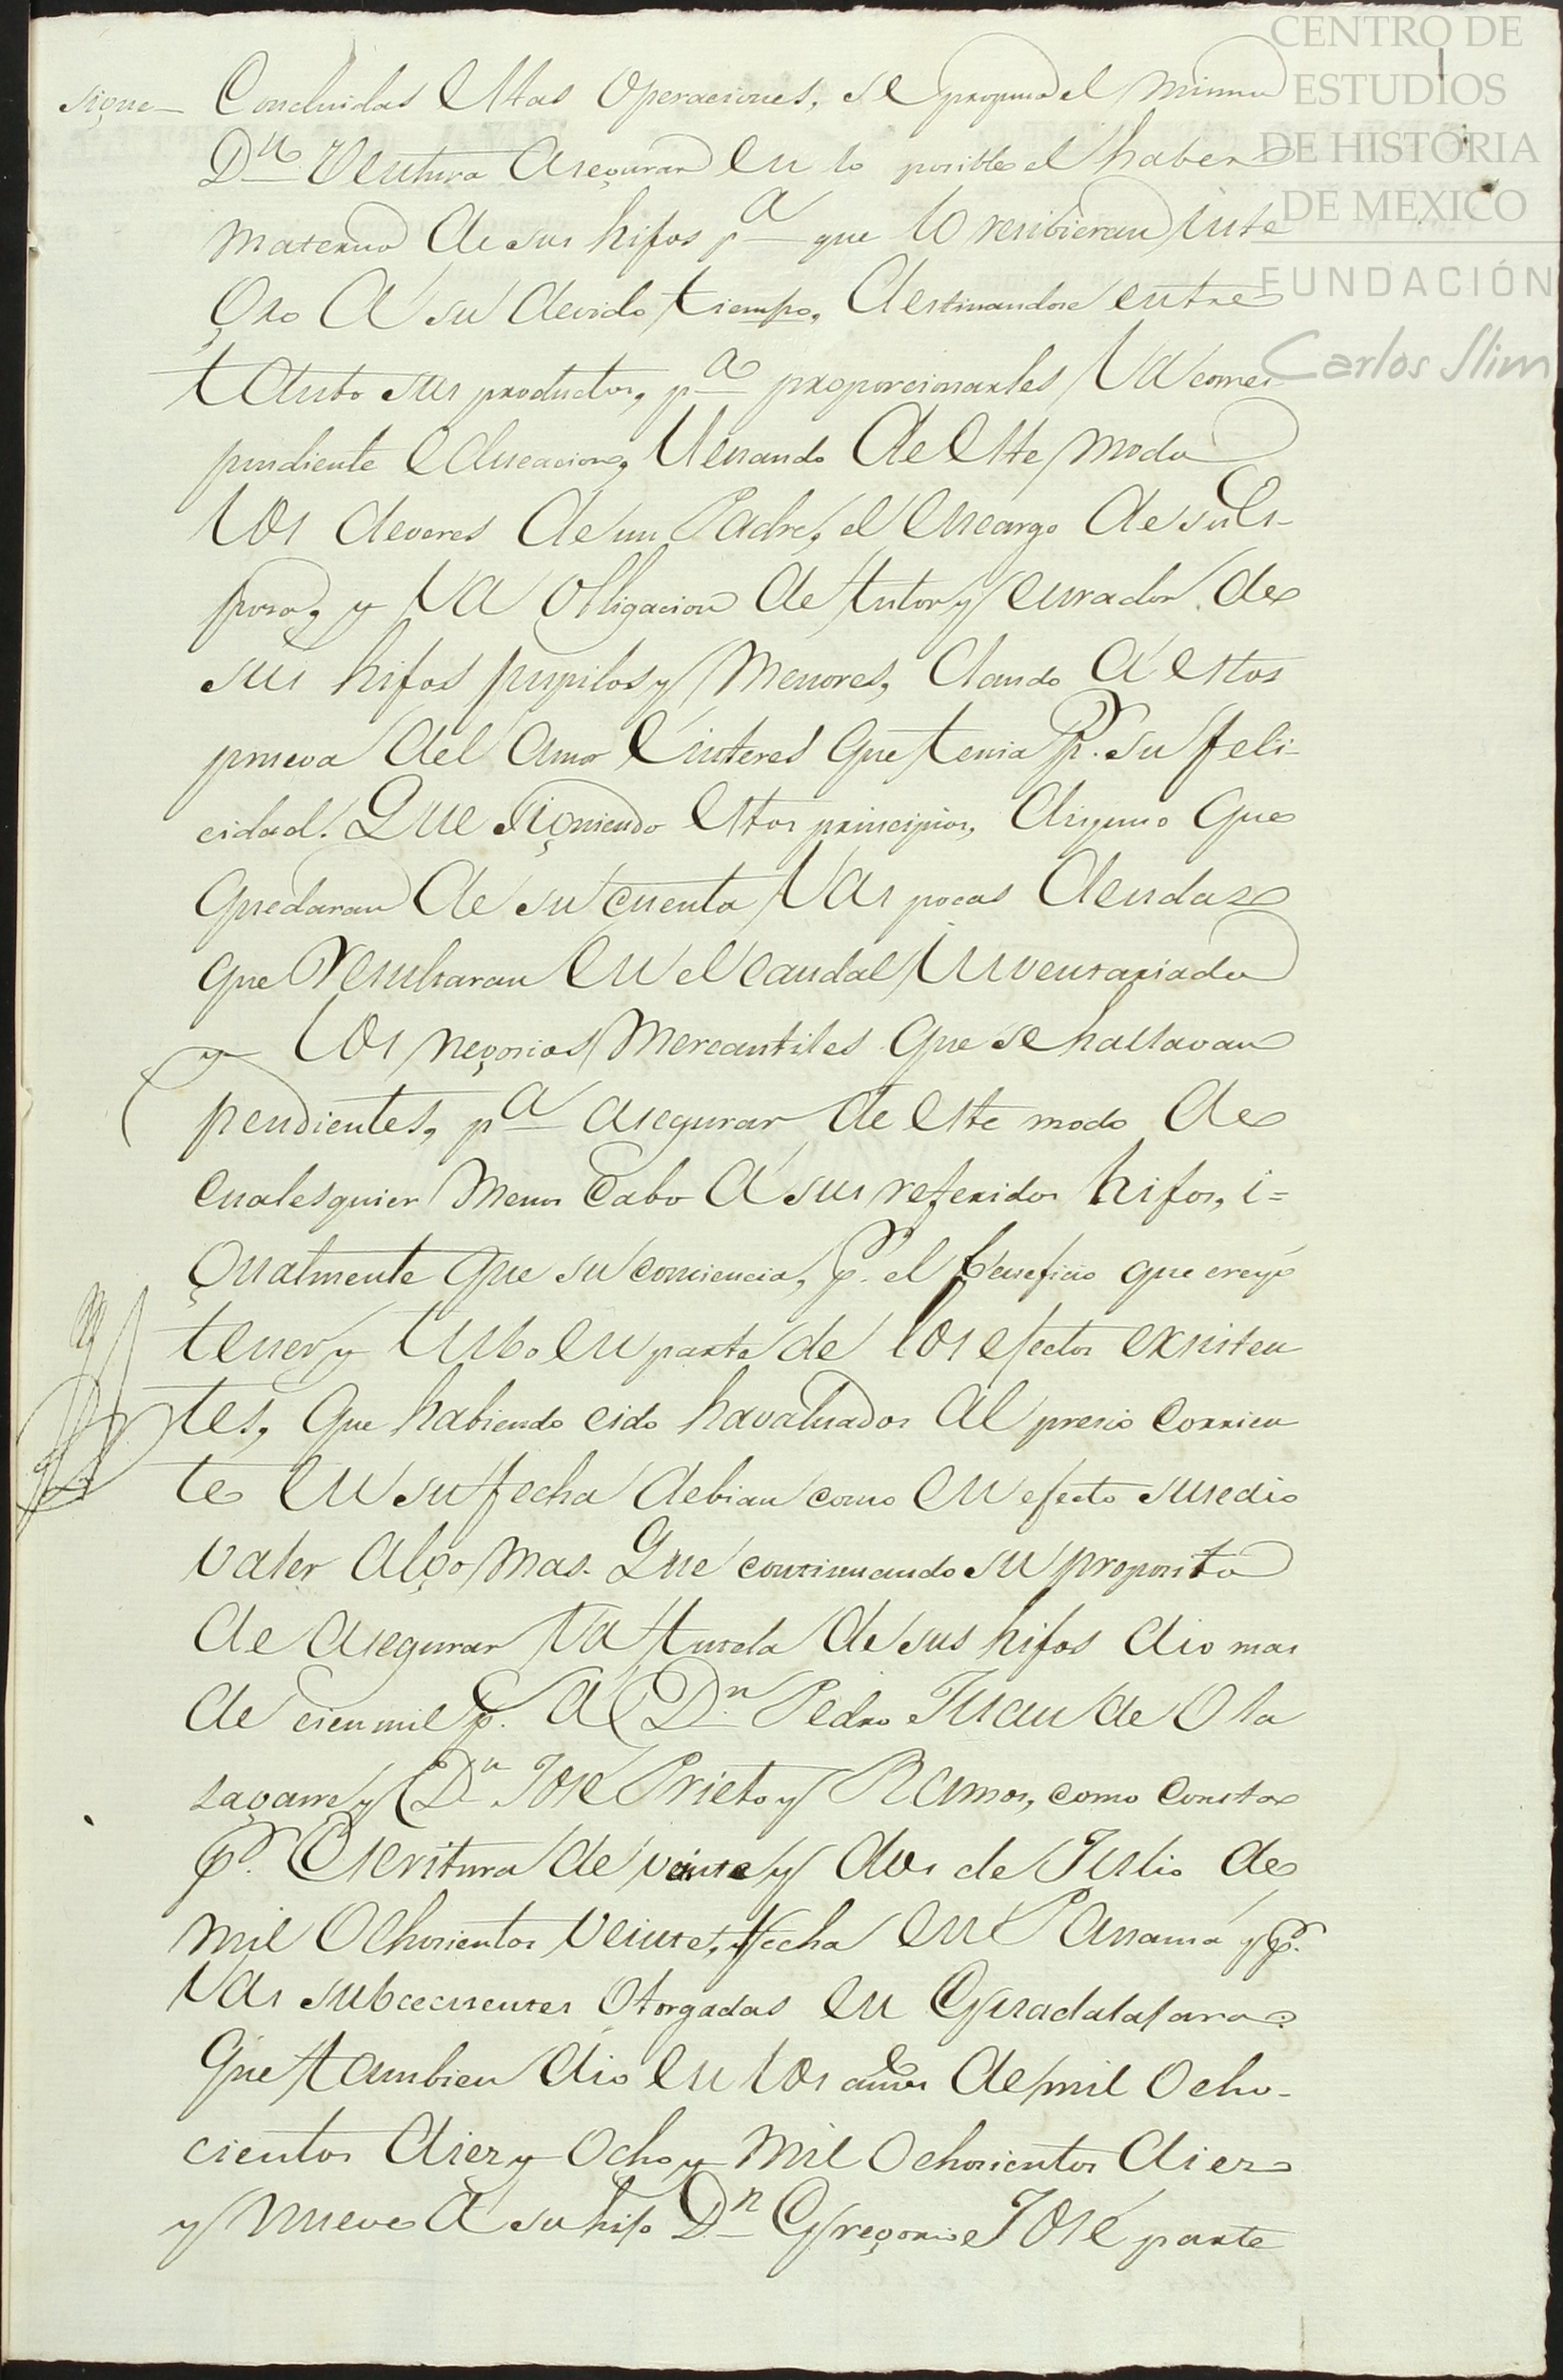 CENTRO DE
ESTUDIOS
DE HISTORIA
DE MEXICO
FUNDACIÓN
Carlos Slim
sigue Concluidas estas operaciones, se propuso el mismo
Dn Ventura asegurar en lo posible el haber
materno de sus hijos pa que lo resibieran inte
gro a su devido tiempo, destinandose entre
tanto sus productos, pa proporcionarles la corres
pondiente educacion, llenando de este modo
los deveres de un Padre, el encargo de su es-
posa, y la obligacion de tutor y curador de
sus hijos pupilos y menores, dando a estos
prueva del amor é interes que tenia pr. su feli-
cidad. Que siguiendo estos principios, dispuso que
quedaran de su cuenta las pocas deudas
que resultaran en el caudal inventariado
y los negocios mercantiles que se hallavan
pendientes, pa asegurar de este modo de
cualesquier menos cabo a sus referidos hijos, i=
gualmente que su conciencia, pr. el beneficio que creyó
tener y tubo en parte de los efectos existen
tes, que habiendo cido havaluados al presio corrien
te en su fecha debian como en efecto susedio
valer algo mas. Que continuando su proposito
de asegurar la tutela de sus hijos dio mas
de cien mil ps. a Dn Pedro Juan de Ola
sagarre y Dn José Prieto y Ramos, como consta
pr. Escritura de veinte y dos de Julio de
mil ochosientos veinte, fecha en Panamá y pr.
las subcecuentes otorgadas en Guadalajara.
Que tambien dio en los años de mil ocho-
cientos diez y ocho y mil ochosientos diez
y nueve a su hijo Dn Gregorio José parte